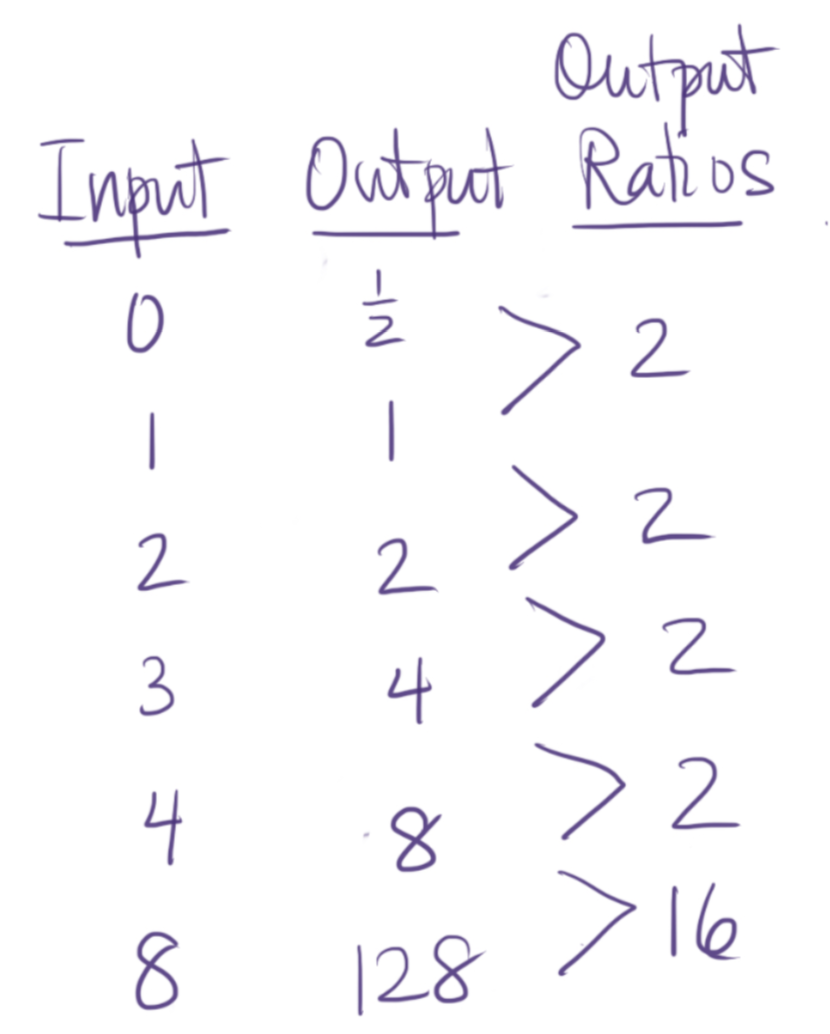 Input Output Output Ratios
0 1/2 > 2
1 1 > 2
2 2 > 2
3 4 > 2
4 8 > 16
8 128